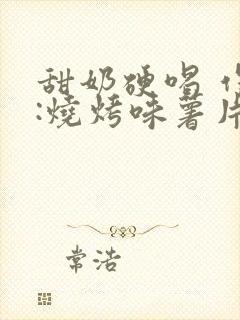 甜奶硬唱
:燒烤味薯片
常浩